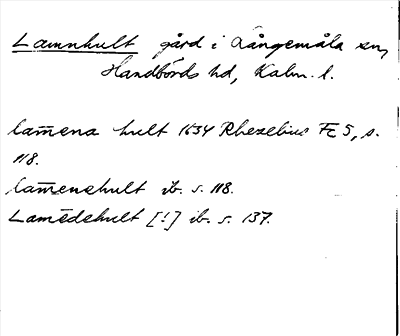 Lamnhult gård i Långemåla sn,
Handbörds hd, Kalm. l.
lam̅ena hult 1634 Rhezelius Fc 5, s.
118.
lam̅enehult ib. s. 118.
Lamēdehult [!] ib. s. 137.